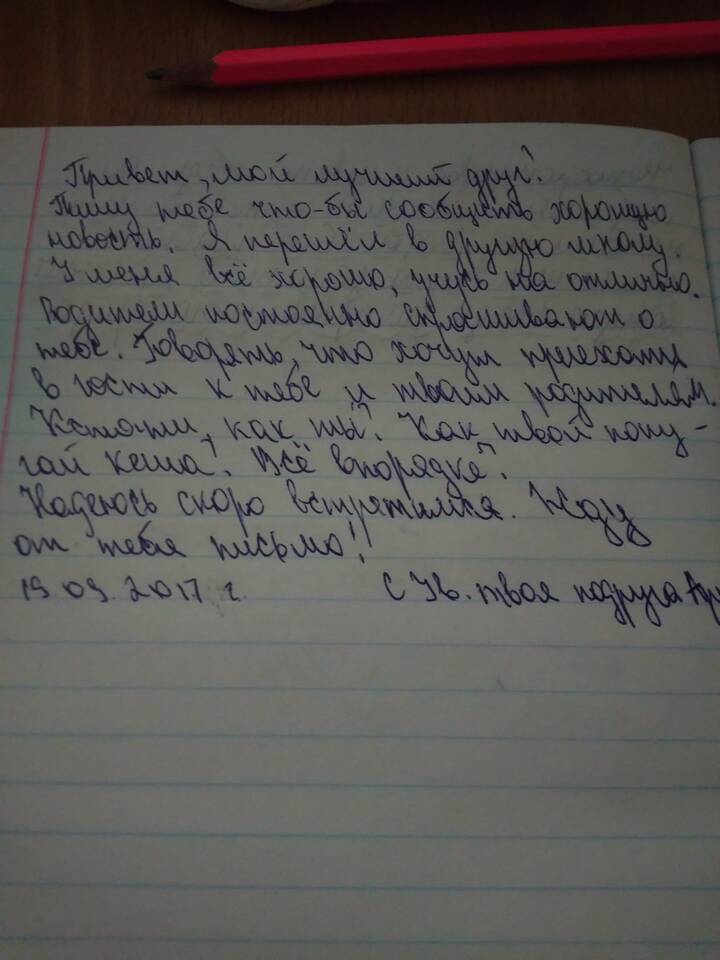 Привет, мой лучший друг!
Пишу тебе что-бы сообщить хорошую
новость. Я перешёл в другую школу.
У меня всё хорошо, учусь на отлично.
Родители постоянно спрашивают о
тебе. Говорять, что хочут приехать
в гости к тебе и твоим родителям.
Кстати, как ты? Как твой попу-
гай Кеша? Всё впорядке?
Надеюсь скоро встретимся. Жду
от тебя письмо!
19.09.2017 г. С Ув. твоя подруга